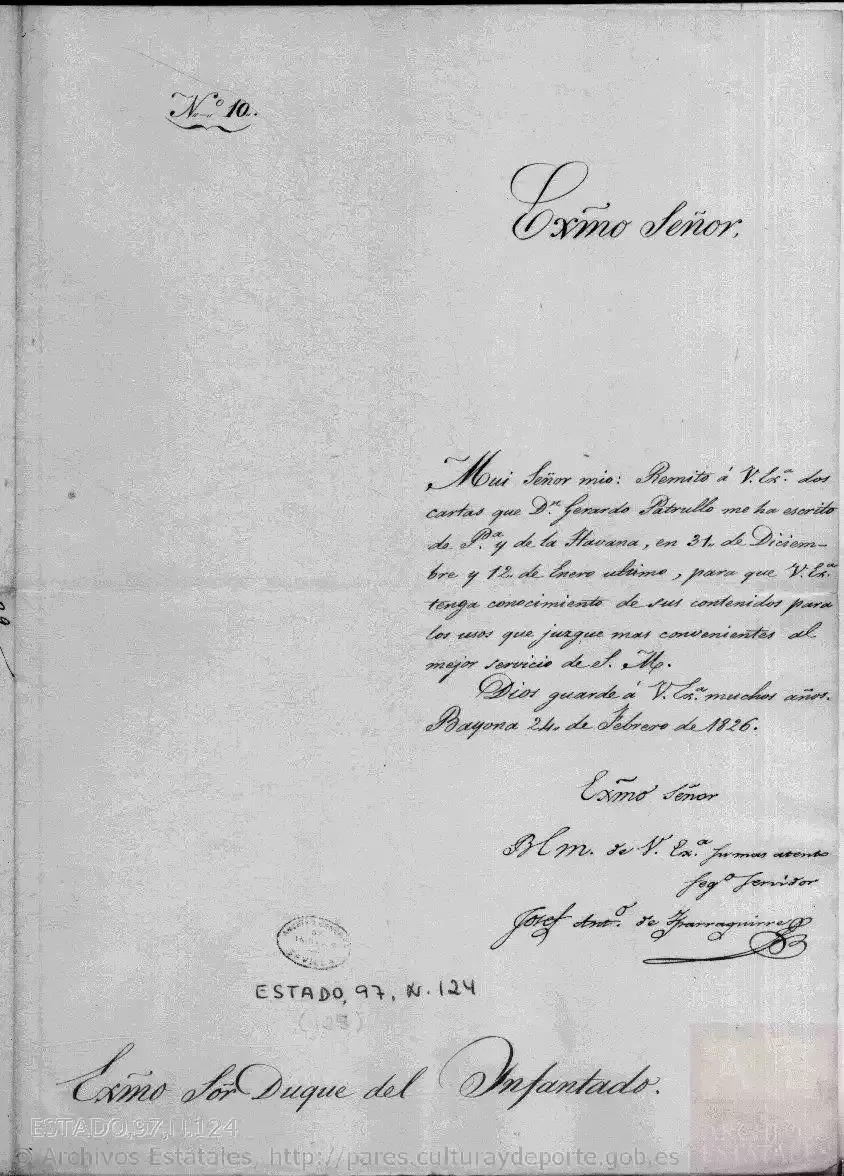 Nº 10.
Exmo Señor,
Mui Señor mio: Remito á V. Exª. dos
cartas que Dn. Gerardo Patrullo me ha escrito
de P.ª y de la Havana, en 31. de Diciem-
bre y 12. de Enero ultimo, para que V. Exª.
tenga conocimiento de sus contenidos para
los usos que juzgue mas convenientes al
mejor servicio de S. M.
Dios guarde á V. Exª. muchos años.
Bayona 24. de Febrero de 1826.
Exmo Señor
BLm. de V. Exª. su mas atento
segº servidor
Josef Antº. de Yparraguirre
SEVILLA
ESTADO, 97, N. 124
Exmo Sor Duque del Infantado.
ESTADO,97,N.124
© Archivos Estatales, http://pares.culturaydeporte.gob.es